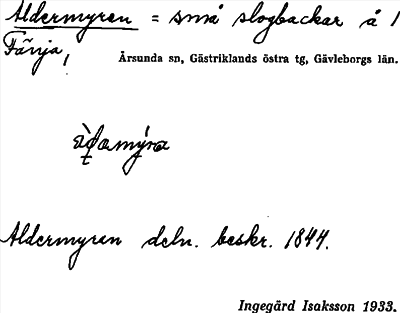 Aldermyren = små slogbackar å 1
Färja, Årsunda sn, Gästriklands östra tg, Gävleborgs län.
Aldermyren deln. beskr. 1844.
Ingegärd Isaksson 1933.